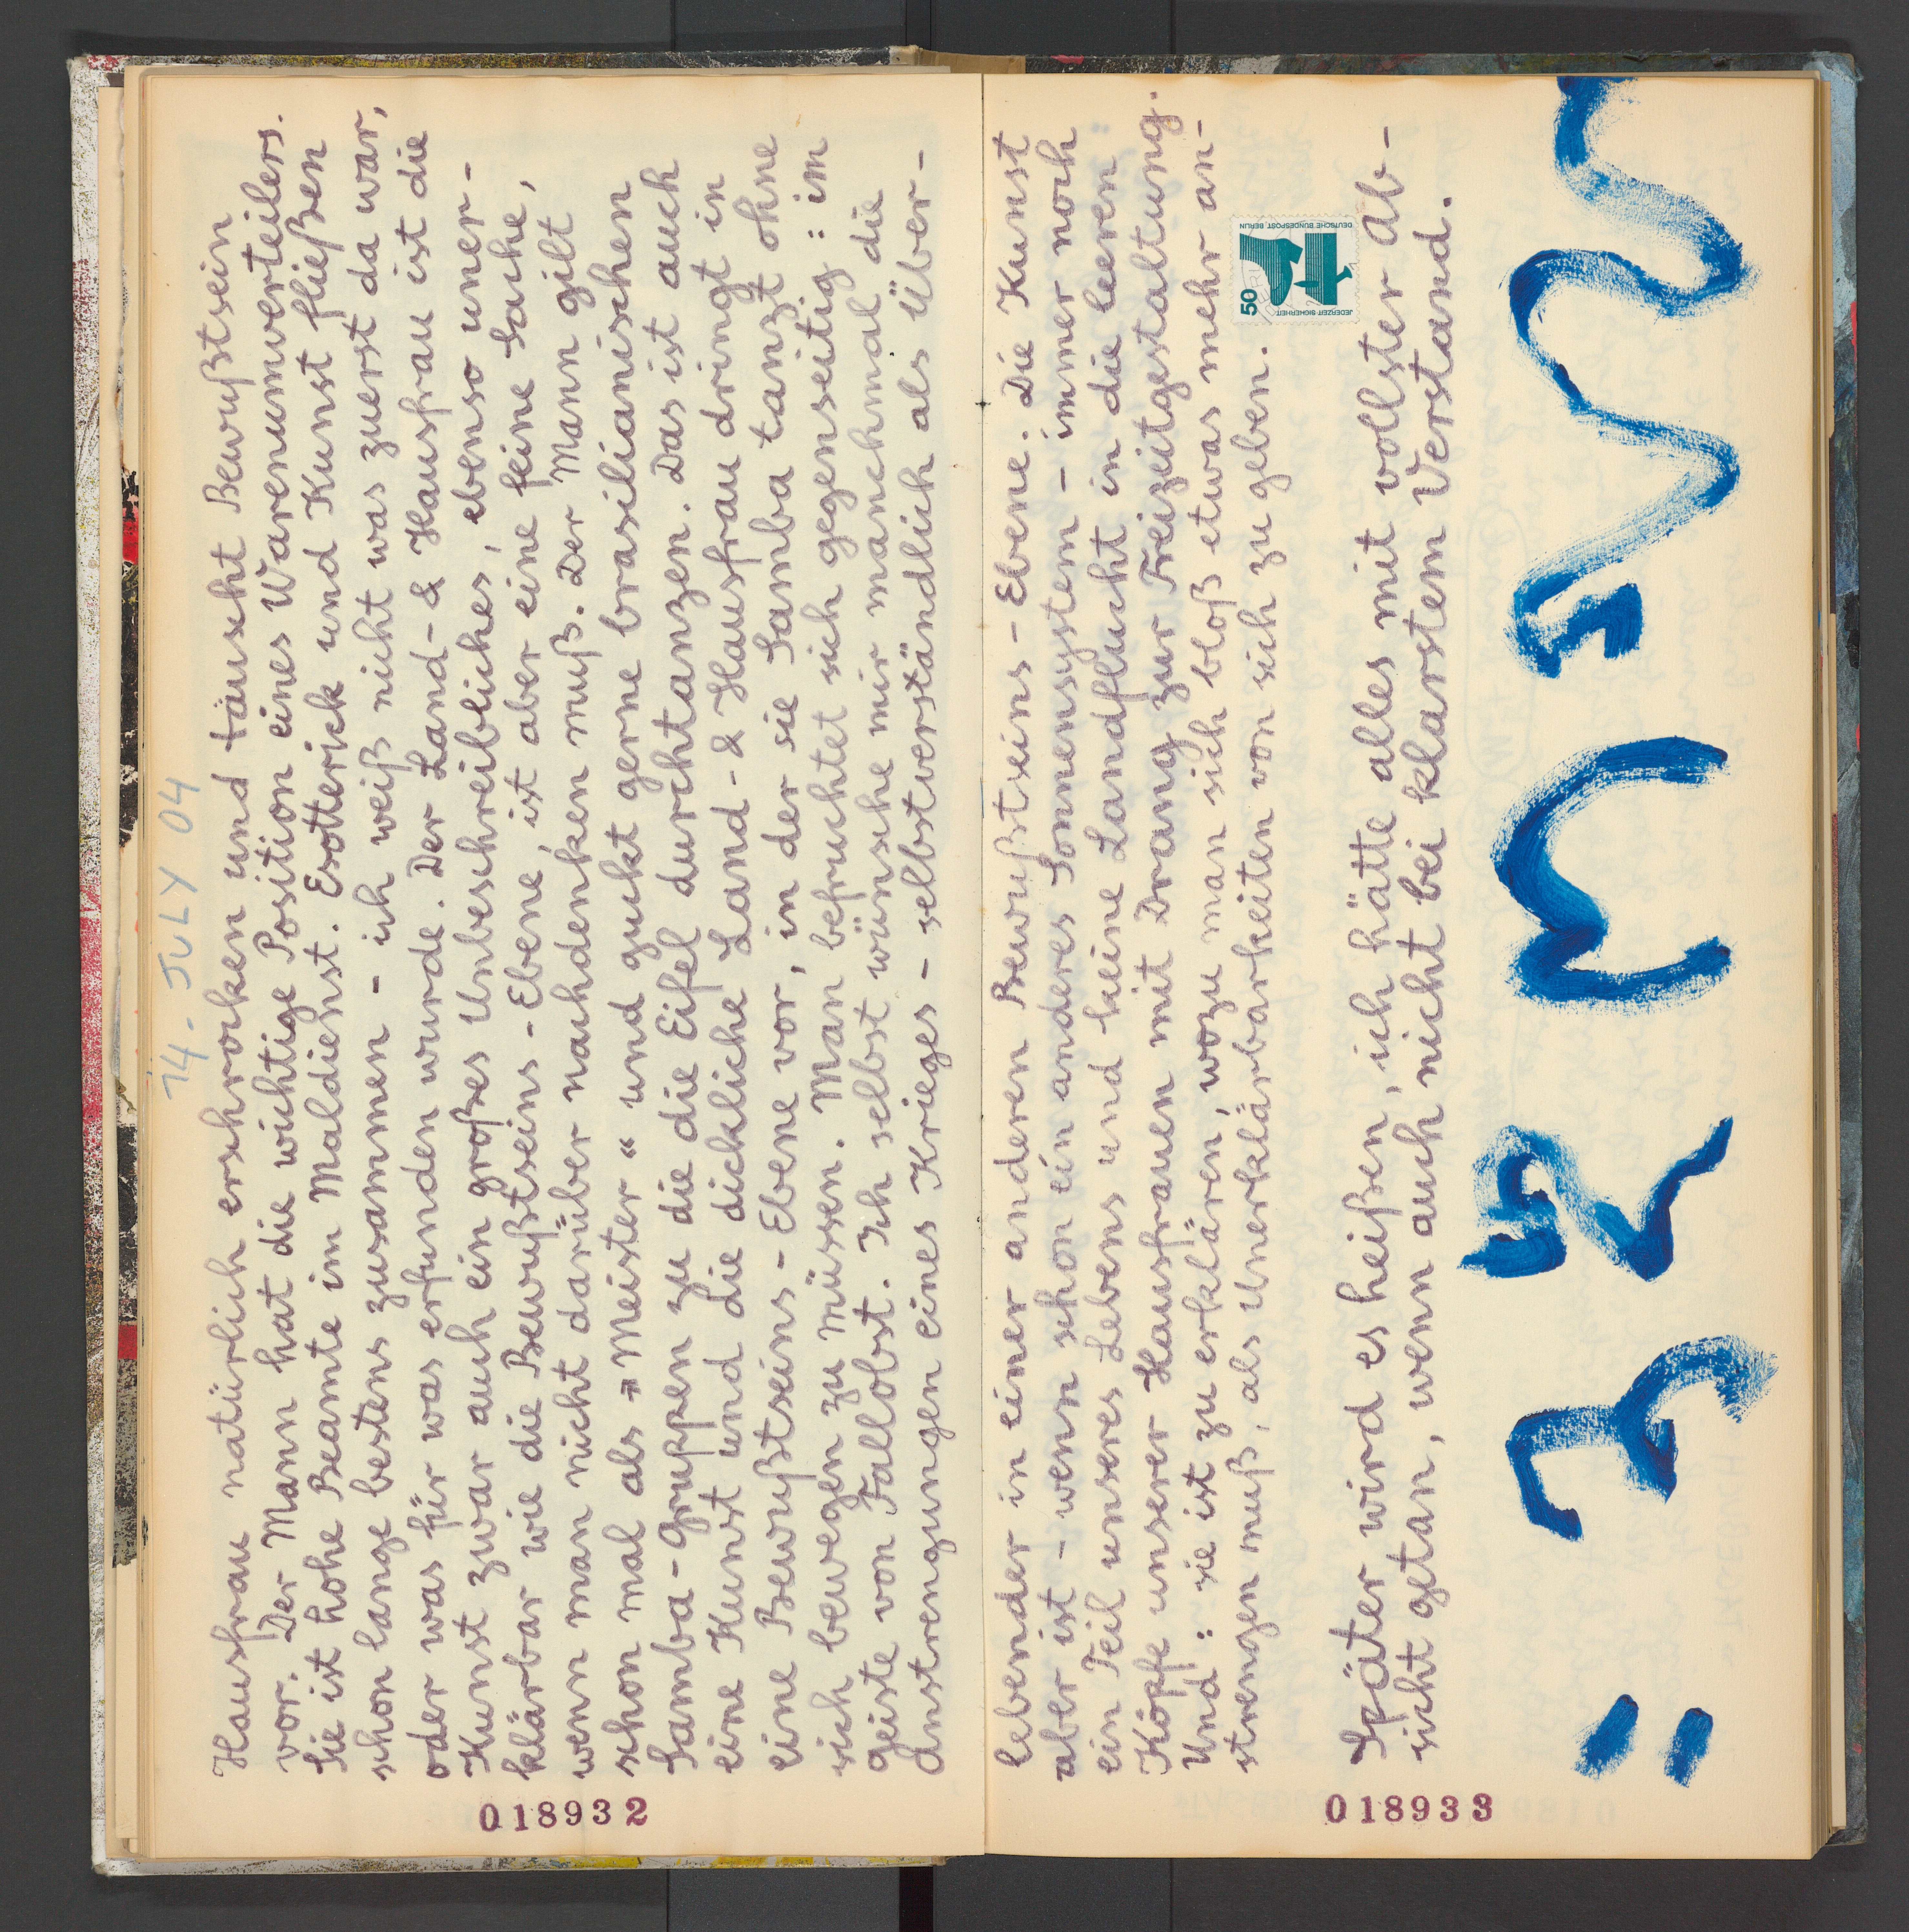 14 - JULY 04
Hausfrau natürlich erschrocken und täuscht Bewußtsein
vor. Der Mann hat die wichtige Position eines Warenumverteilers.
Sie ist hohe Beamte im Maldienst. Esotterick und Kunst fließen
schon lange bestens zusammen - ich weiß nicht was zuerst da war,
oder was für was erfunden wurde. Der Land- & Hausfrau ist die
Kunst zwar auch ein großes Unbeschreibliches, ebenso uner-
klärbar wie die Bewußtseins-Ebene, ist aber eine feine Sache,
wenn man nicht darüber nachdenken muß. Der Mann gilt
schon mal als "Meister" und guckt gerne brasilianischen
Samba-Gruppen zu die die Eifel durchtanzen. Das ist auch
eine Kunst und die dickliche Land- & Hausfrau dringt in
eine Bewußtseins-Ebene vor, in der sie Samba tanzt ohne
sich bewegen zu müssen. Man befruchtet sich gegenseitig: im
Geiste von Fallobst. Ich selbst wünsche mir manchmal die
Anstrengungen eines Krieges - selbstverständlich als Über-
018932
lebender in einer anderen Bewußtseins-Ebene. Die Kunst
aber ist - wenn schon ein anderes Sonnensystem - immer noch
ein Teil unseres Lebens und keine Landflucht in die leeren
Köpfe unserer Hausfrauen mit Drang zur Freizeitgestaltung.
Und: sie ist zu erklären, wozu man sich bloß etwas mehr an-
strengen muß, als Unerklärbarkeiten von sich zu geben.
50
JEDERZEIT SICHERHEIT
DEUTSCHE BUNDESPOST BERLIN
Später wird es heißen, ich hätte alles mit vollster Ab-
sicht getan, wenn auch nicht bei klarstem Verstand.
018933